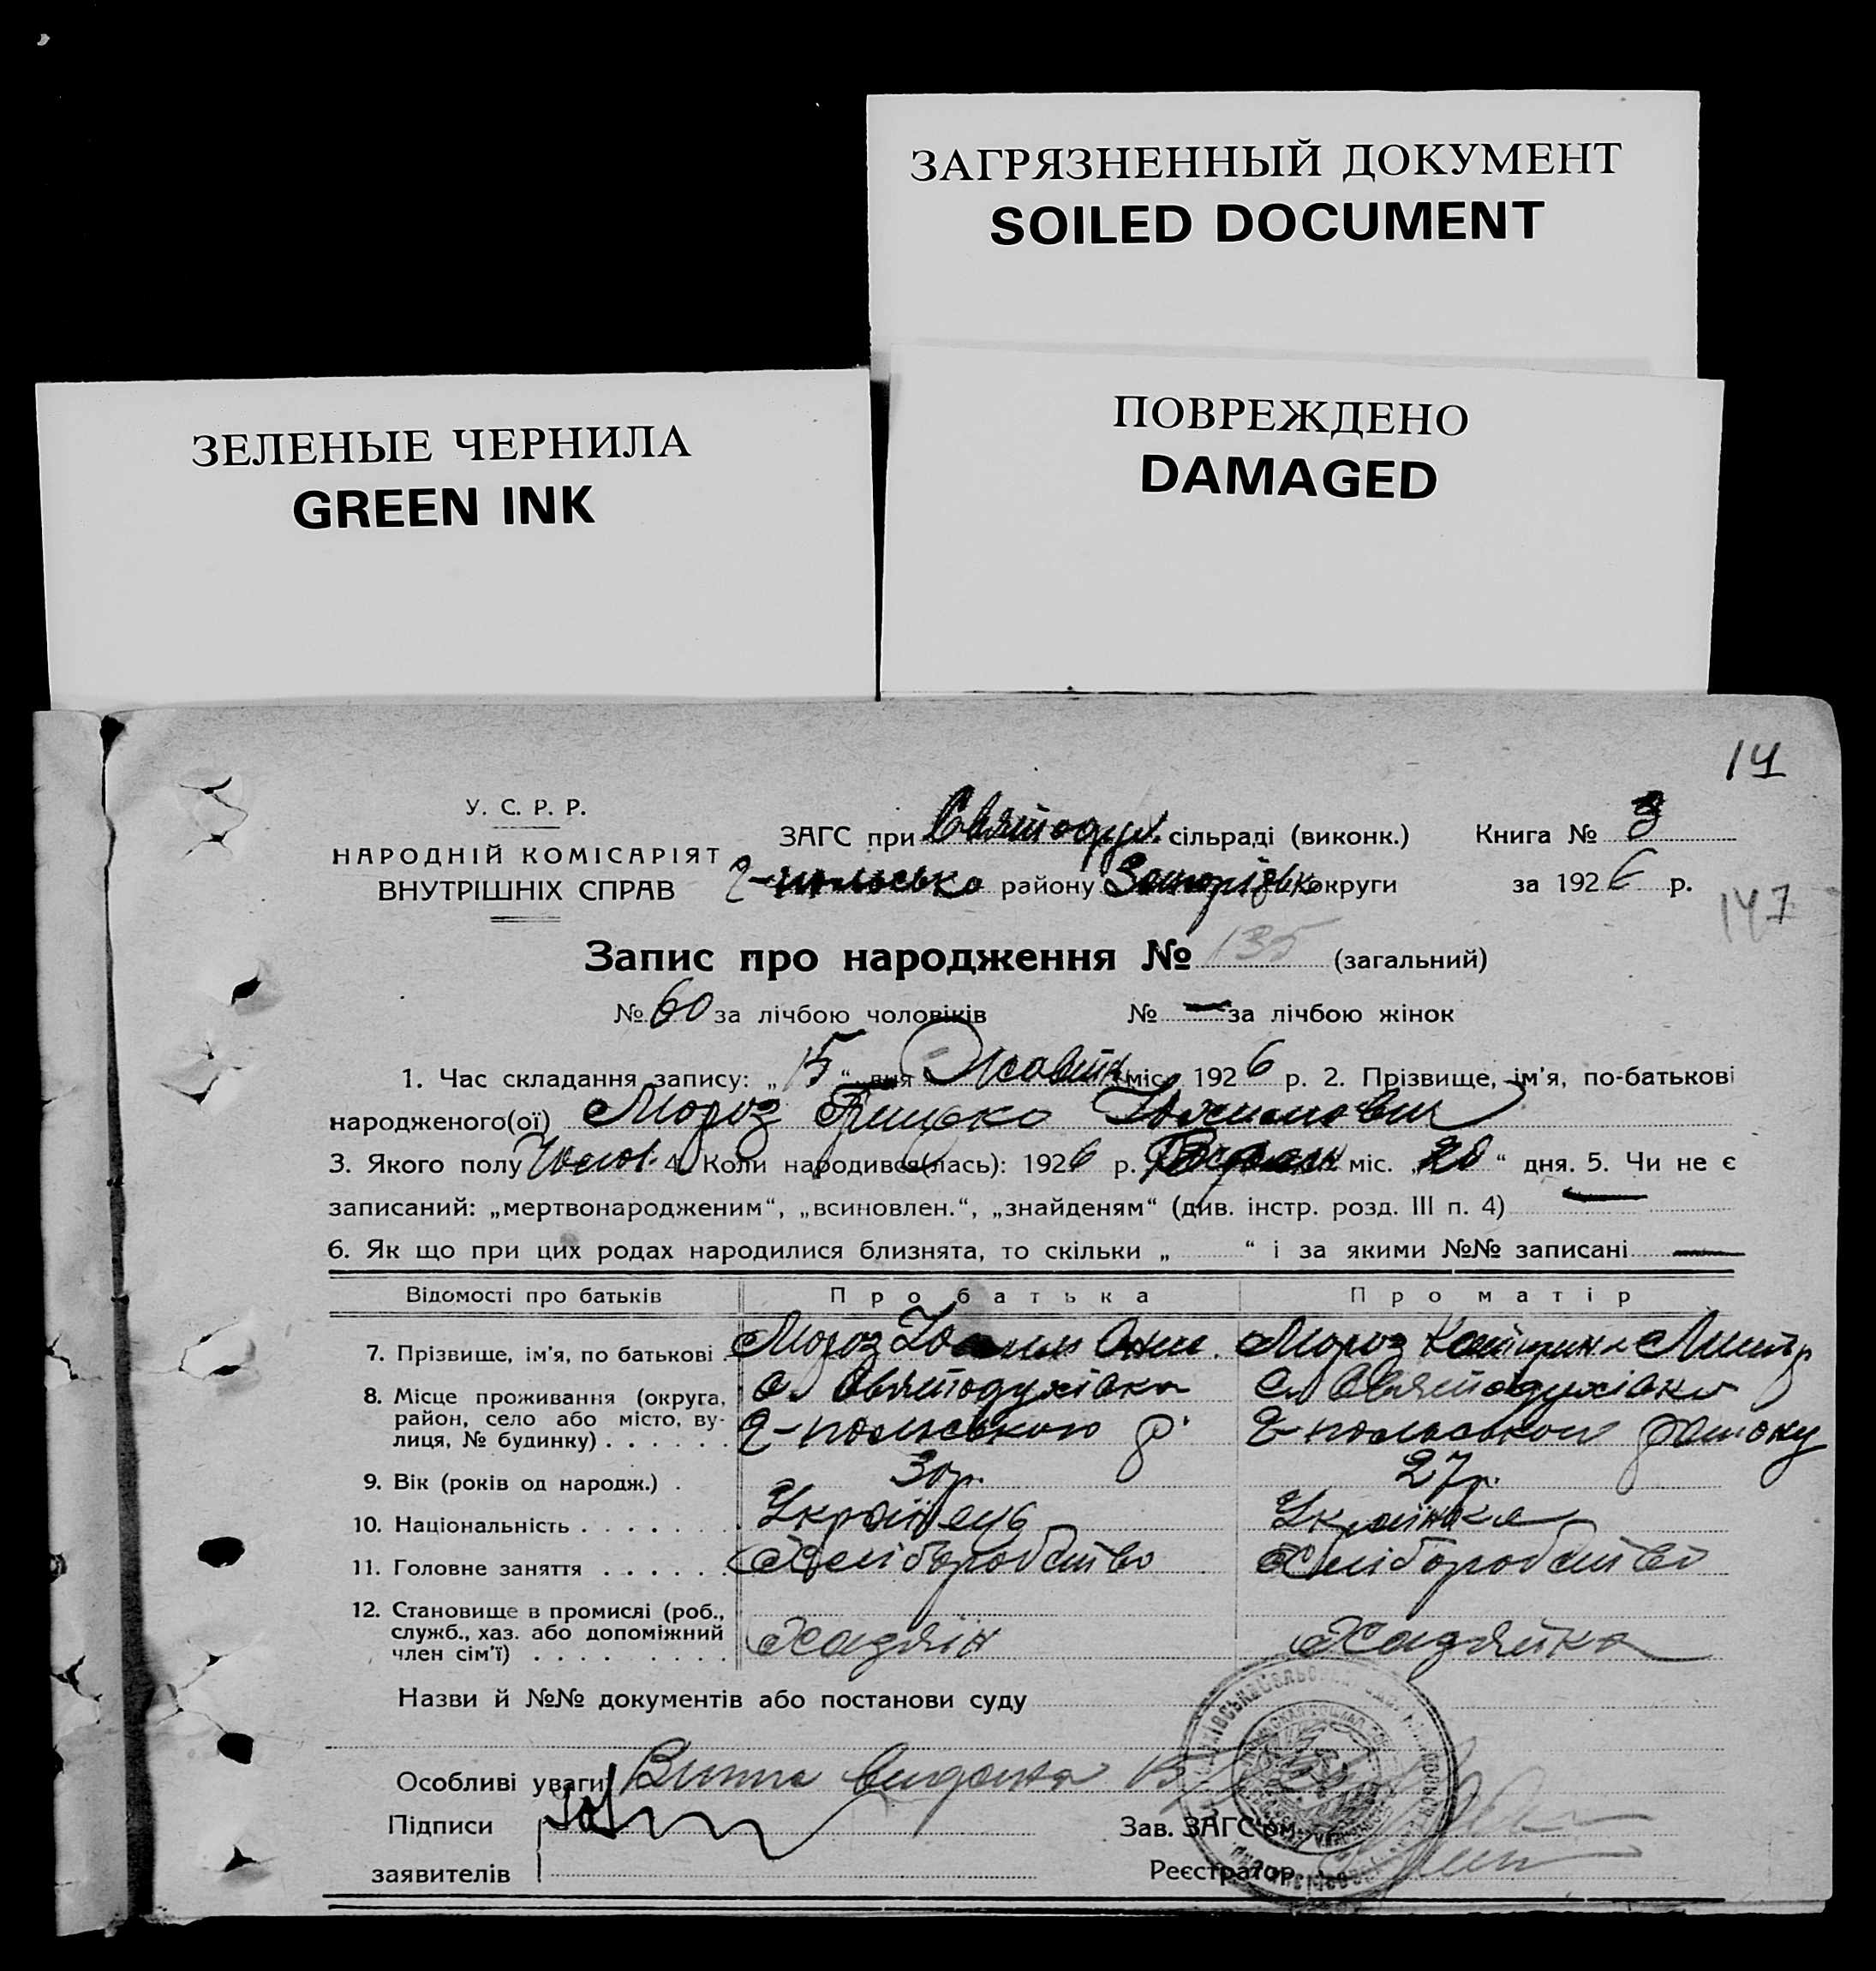 ЗАГРЯЗНЕННЫЙ ДОКУМЕНТ
SOILED DOCUMENT
ЗЕЛЕНЫЕ ЧЕРНИЛА
GREEN INK
ПОВРЕЖДЕНО
DAMAGED
14
У. С. Р. Р.
НАРОДНІЙ КОМІСАРІЯТ
ВНУТРІШНІХ СПРАВ
ЗАГС при Святодух. сільраді (виконк.) Книга № 3
району округи за 1926 р.
147
Запис про народження № 135 (загальний)
№ 60 за лічбою чоловіків № — за лічбою жінок
1. Час складання запису: „15“ дня Жовтн міс. 1926 р. 2. Прізвище, ім’я, по-батькові
народженого(ої) Мороз Грицько
3. Якого полу Чолов. 4. Коли народився(лась): 1926 р. міс. „20“ дня. 5. Чи не є
записаний: „мертвонародженим“, „всиновлен.“, „знайденям“ (див. інстр. розд. III п. 4) —
6. Як що при цих родах народилися близнята, то скільки „ “ і за якими №№ записані —
Відомості про батьків Про батька Про матір
7. Прізвище, ім’я, по батькові . Мороз Мороз Катерина
8. Місце проживання (округа, с. Святодухівка с. Святодухівка
район, село або місто, ву-
лиця, № будинку) . . . . . . Г-польського р. Г-польського району
9. Вік (років од народж.) . 30 р. 27 р.
10. Національність . . . . . . . Українець Українка
11. Головне заняття . . . . . . Хліборобство Хліборобство
12. Становище в промислі (роб.,
служб., хаз. або допоміжний Хазяїн Хазяйка
член сім’ї) . . . . . . . . .
Назви й №№ документів або постанови суду
Особливі уваги видана 15
Підписи Зав. ЗАГС’ом
заявителів Реєстратор